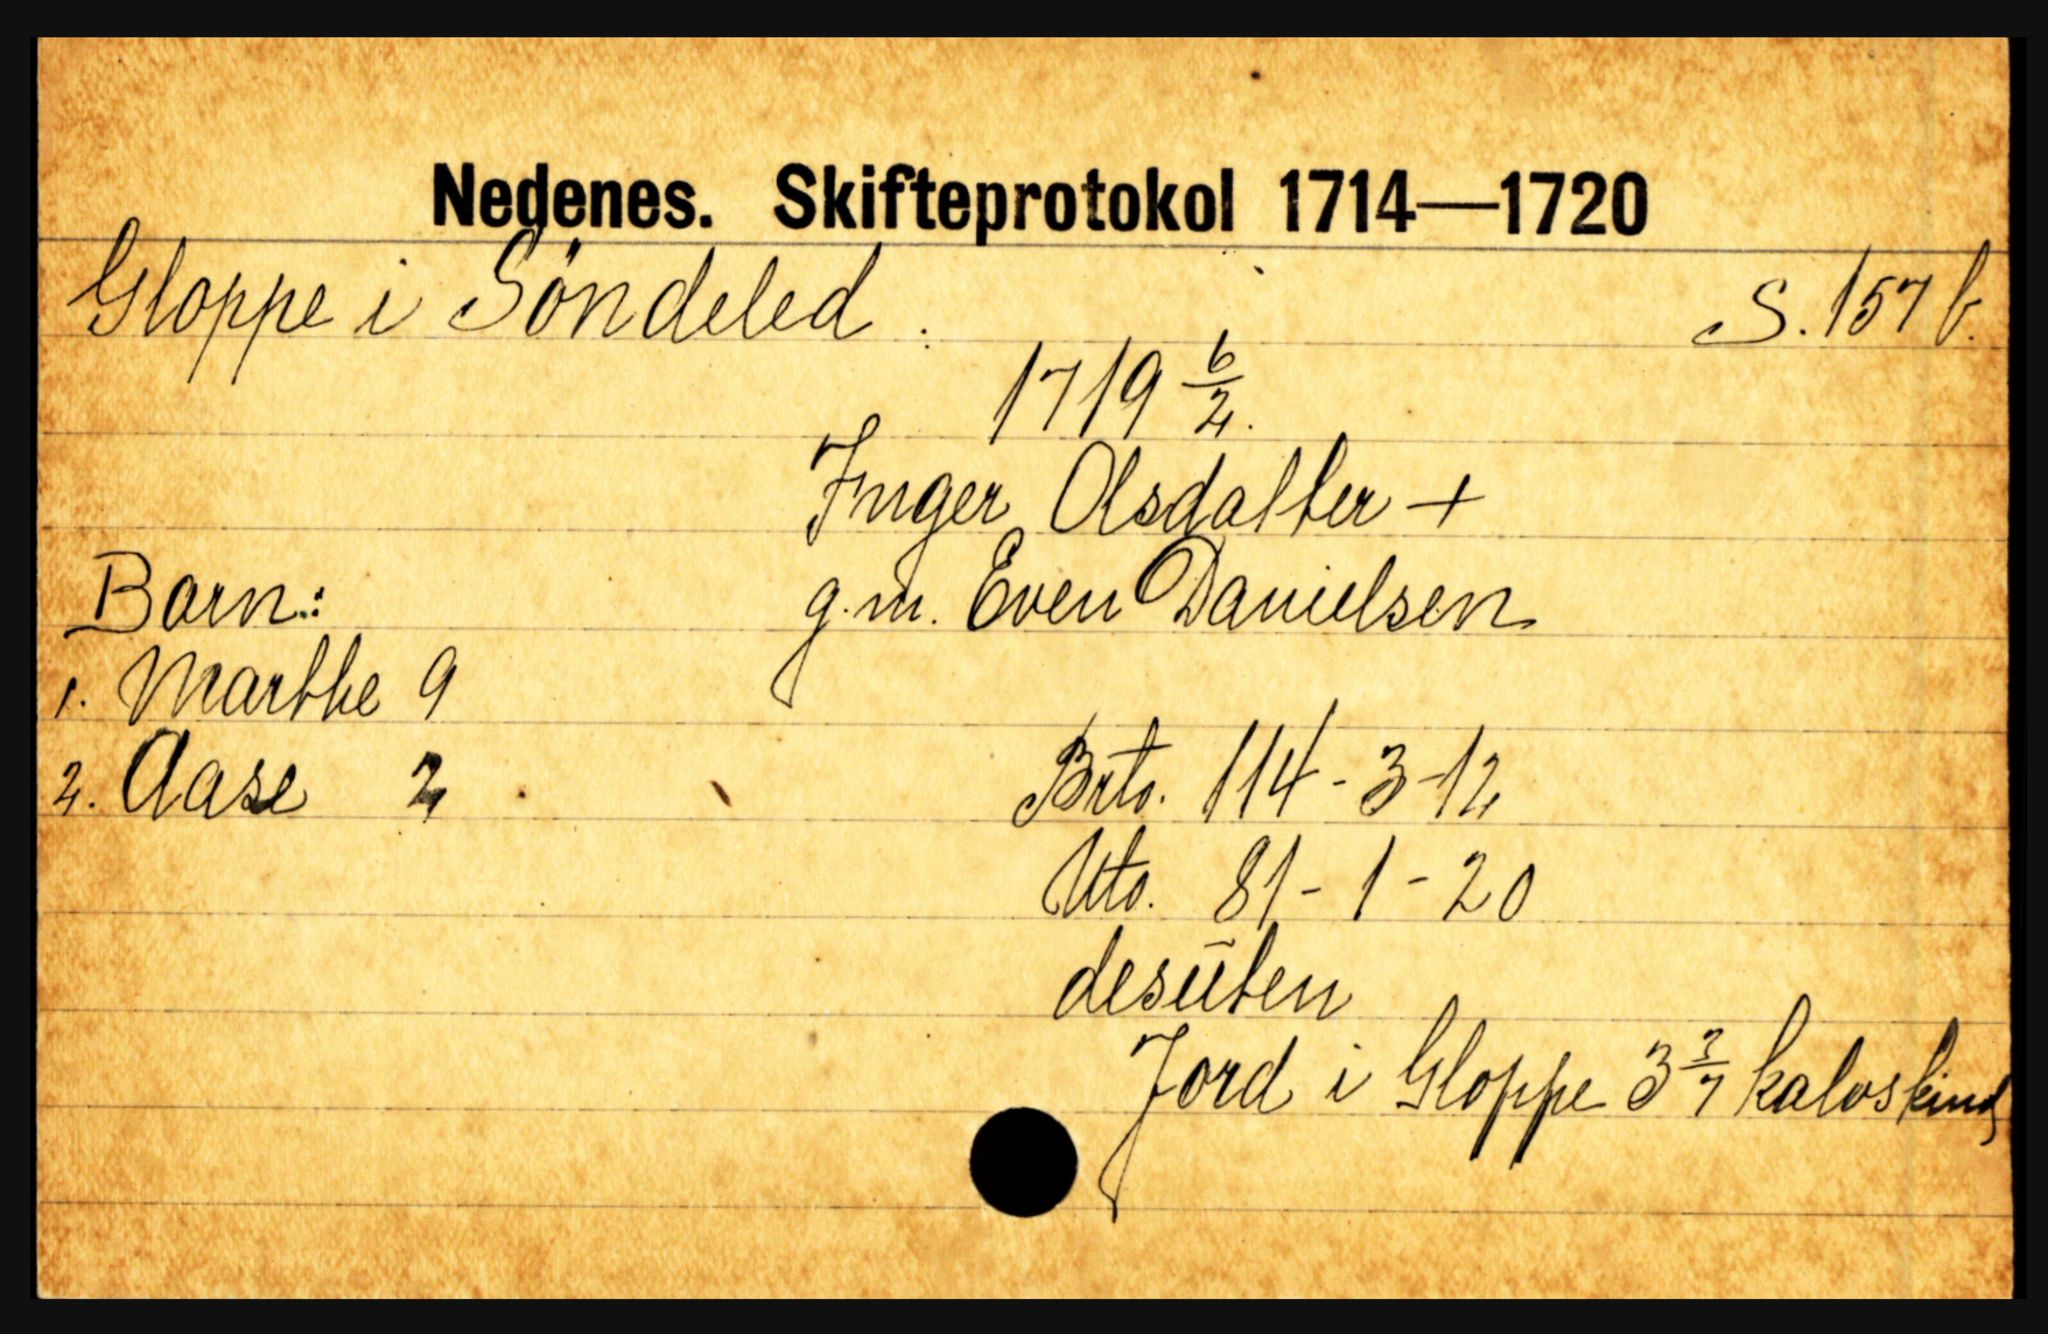 Nedenes. Skifteprotokol 1714—1720
Gloppe i Söndeled. S. 157 b.
1719 6/2.
Inger Olsdatter +
g.m. Even Danielsen
Barn:
1. Marthe 9
2. Aase 2
Brto. 114-3-12
Nto. 81-1-20
desūten
Jord i Gloppe 3 3/7 kalvskind